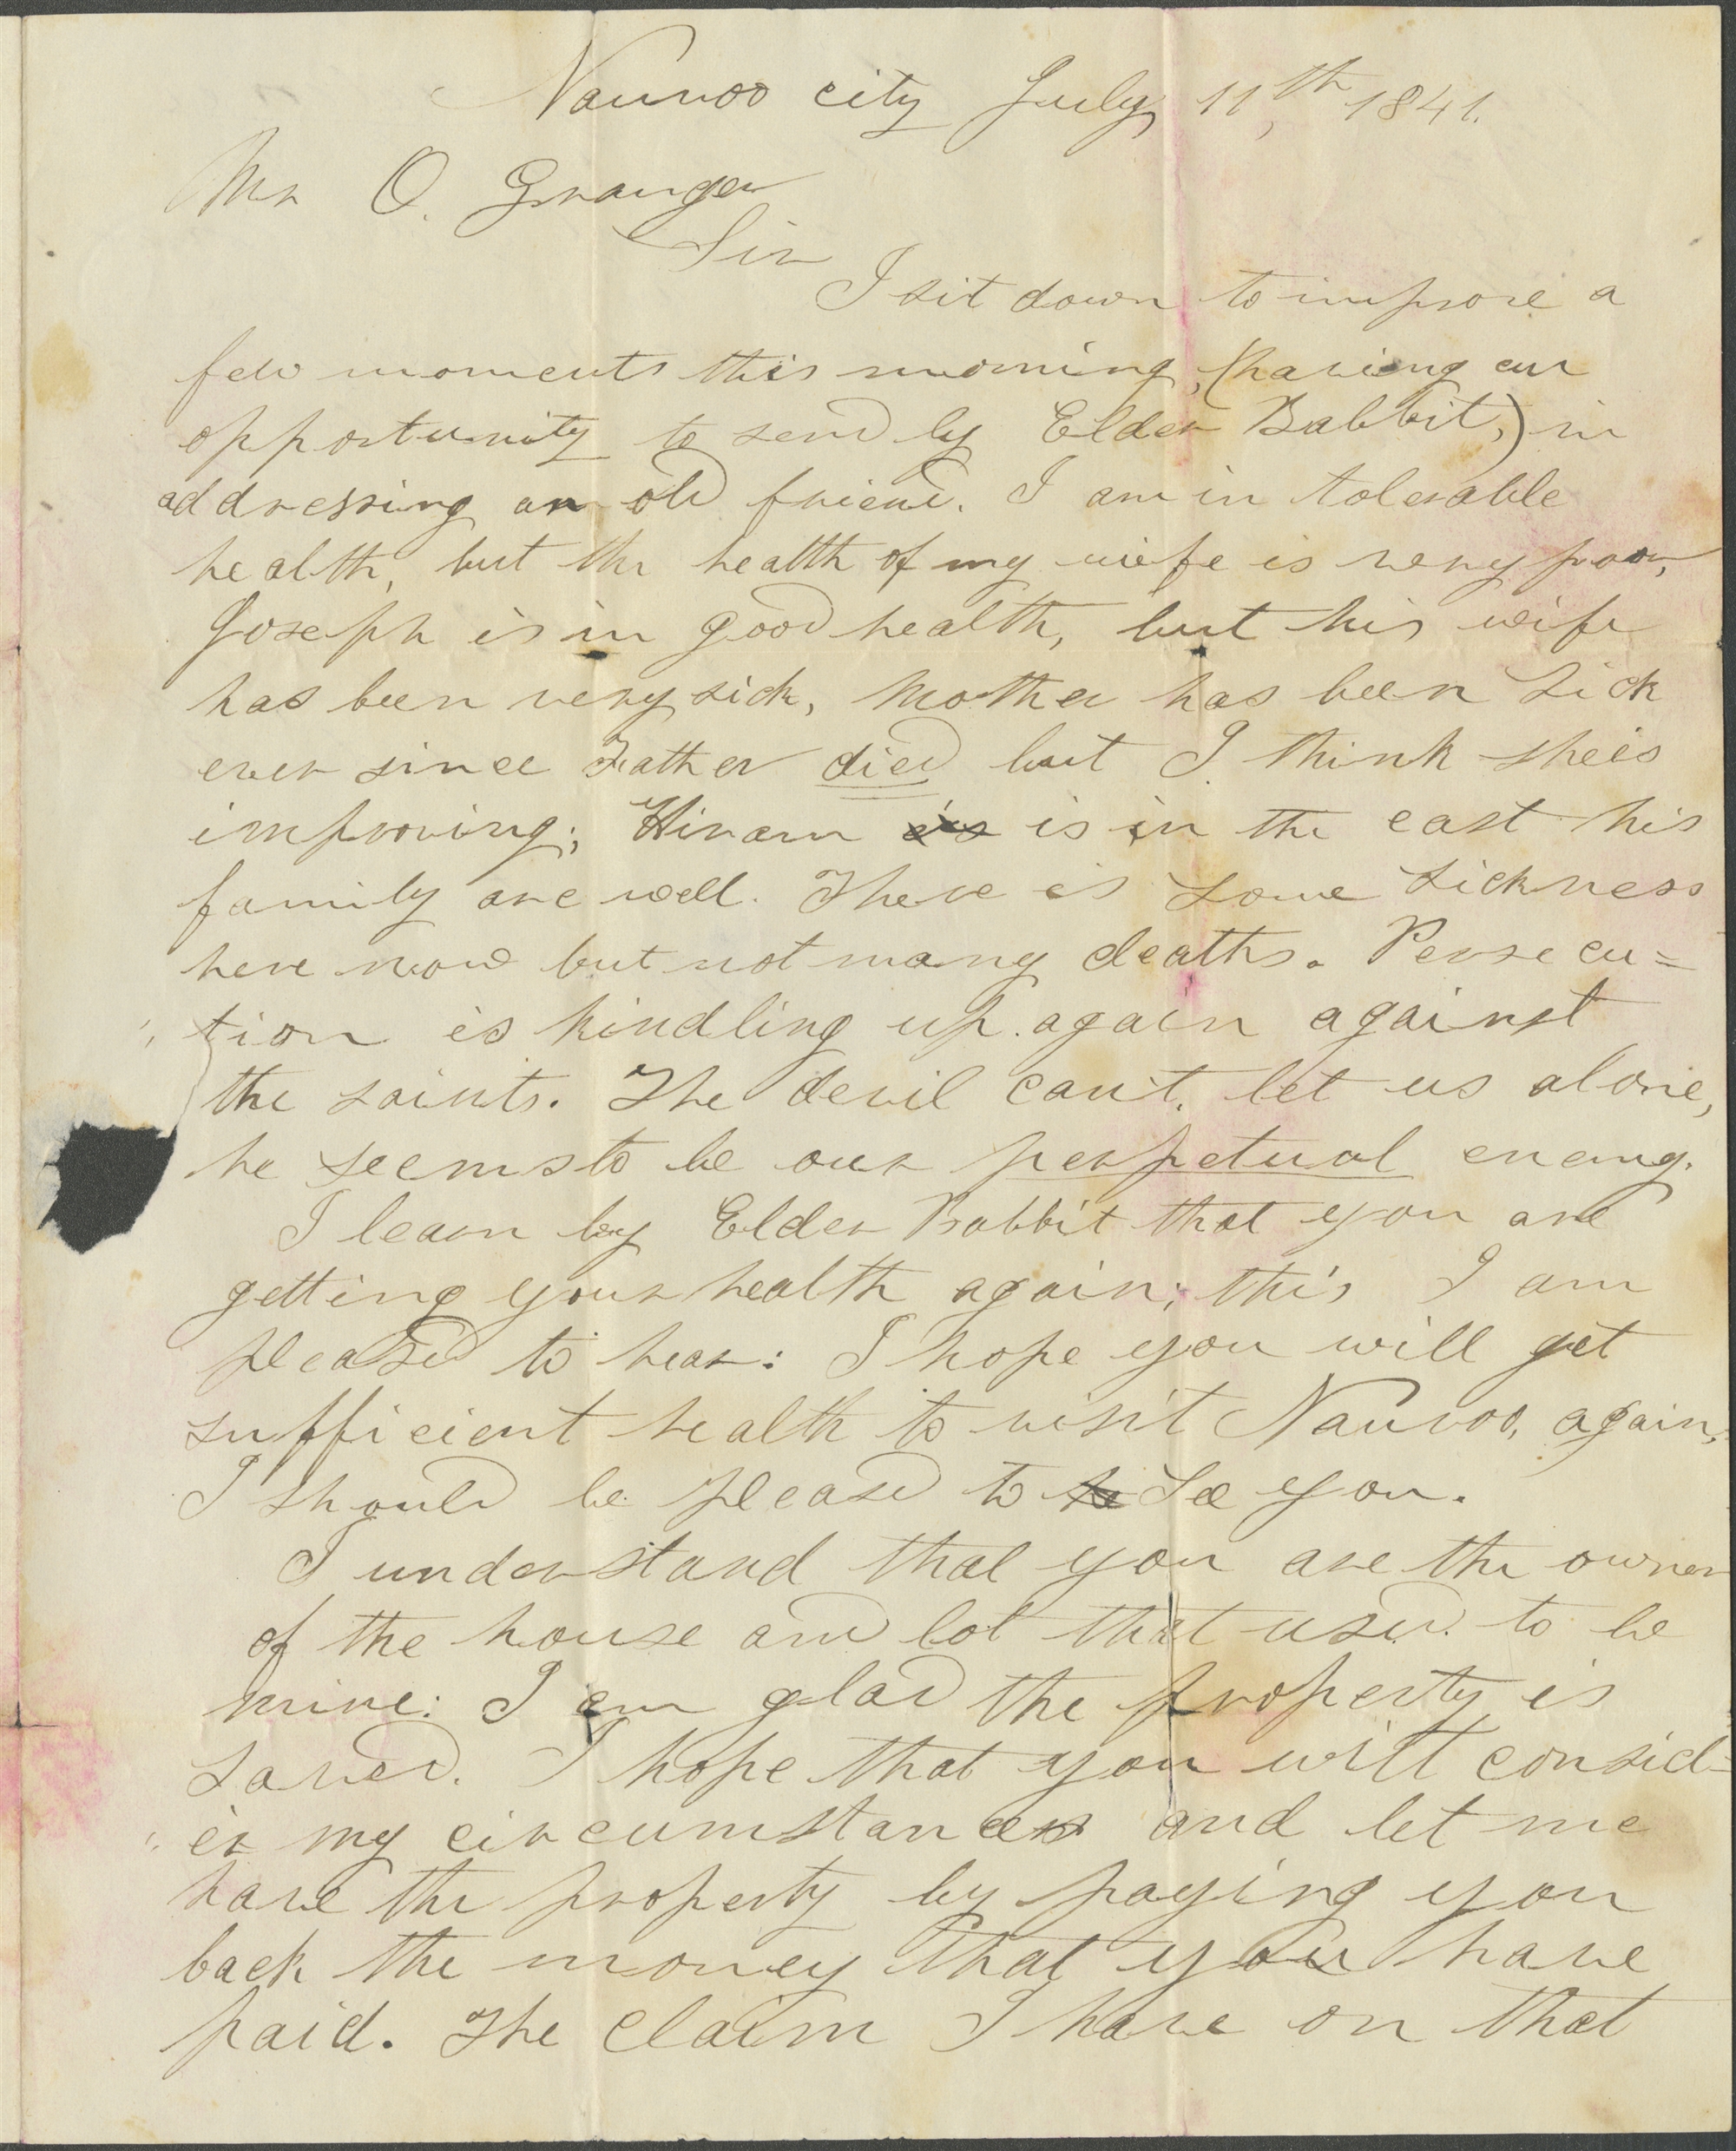 Nauvoo city July, 11,th 1841.
Mr O. Granger
Sir
I sit down to improve a
few moments this morning, (having an
opportunity to send by Elder Babbit,) in
addressing an old friend. I am in tolerable
health, but the health of my wife is very poor,
Joseph is in good health, but his wife
has been very sick, Mother has been sick
ever since Father died but I think she is
improving; Hiram is is in the east his
family are well. There is some sickness
here now but not many deaths. Persecu=
"tion is kindling up again against
the saints. The devil cant, let us alone,
he seems to be our perpetual enemy.
I learn by Elder Babbit that you are
getting your health again; this I am
pleased to hear: I hope you will get
sufficient health to visit Nauvoo, again,
I should be pleased to see you.
I understand that you are the owner
of the house and lot that used to be
mine: I am glad the property is
saved. I hope that you will consid=
"er my circumstances and let me
have the property by paying you
back the money that you have
paid. The claim I have on that